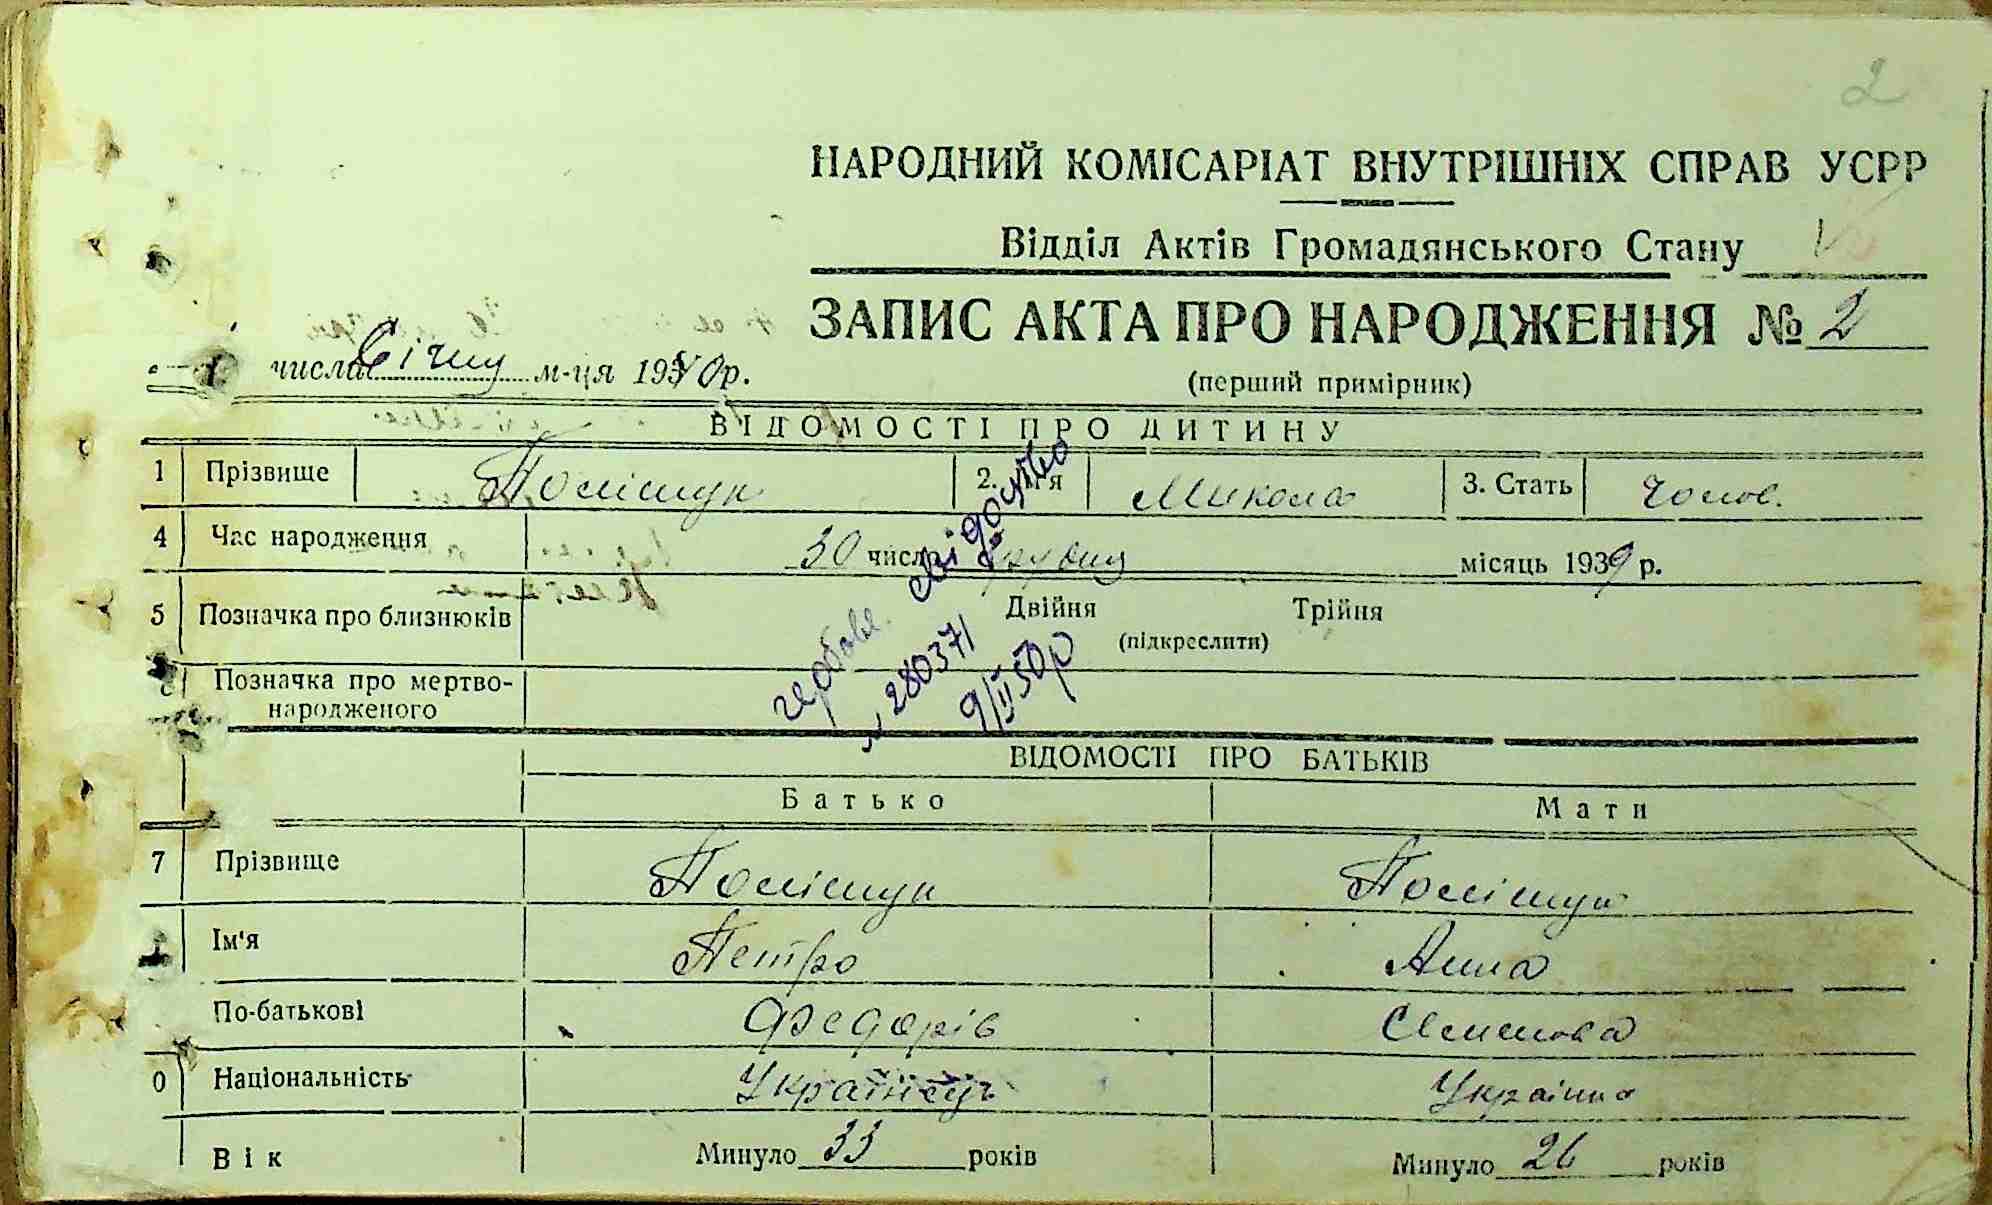 2
НАРОДНИЙ КОМІСАРІАТ ВНУТРІШНІХ СПРАВ УСРР
Відділ Актів Громадянського Стану
ЗАПИС АКТА ПРО НАРОДЖЕННЯ № 2
1 числа Січня м-ця 1940 р.
(перший примірник)
ВІДОМОСТІ ПРО ДИТИНУ
1 Прізвище Поліщук 2. Ім'я Микола 3. Стать чолов.
4 Час народження 30 число грудня місяць 1939 р.
5 Позначка про близнюків Двійня Трійня
(підкреслити)
Позначка про мертво-
народженого
гербове свідоцтво
№ 280371
9/II 50р
ВІДОМОСТІ ПРО БАТЬКІВ
Батько Мати
7 Прізвище Поліщук Поліщук
Ім'я Петро Анна
По-батькові Федорів Семенова
0 Національність Українець Українка
Вік Минуло 33 років Минуло 26 років